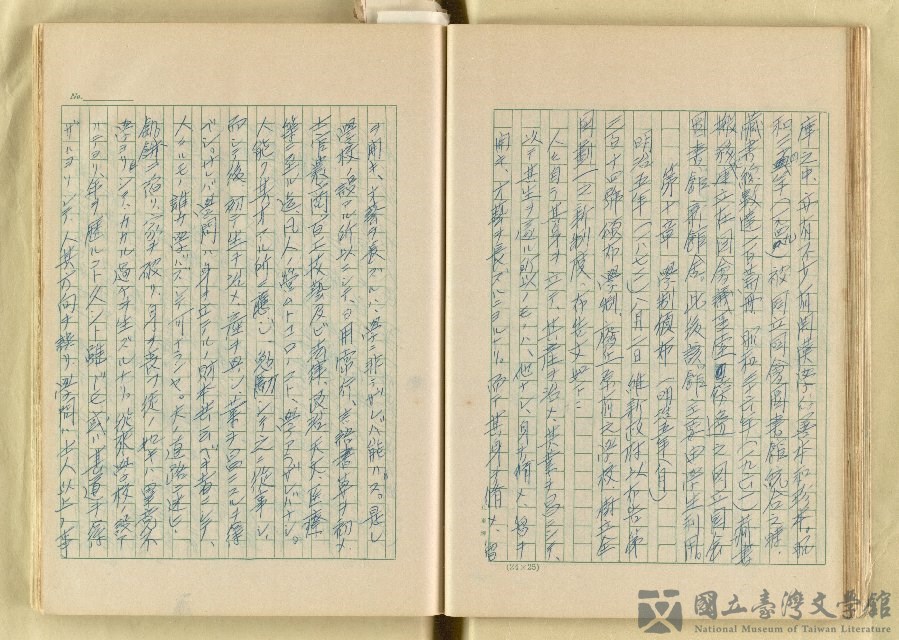 庫之中、亦有不少有関漢学的善本和珍本。昭
和 年( )被 国立国会図書館統合之時、
藏書冊數達一百萬冊。昭和三六年(一九六一)
搬移建立在国会議事堂後邊之国立国会
図書館新館舎、此後該館主要由學生利用。
第十章 學制頒布 (明治五年八月)
明治五年(一八七二)八月二日維新政府以布告第
二百十四號頒布學制、廢止了以前之學校、樹立全
国劃一之新制度、布告文如下:
人々自ラ其身ヲ立テ、其産ヲ治メ、其業ヲ昌ニシテ、
以テ其生ヲ遂ル所以ノモノハ、他ナシ、身ヲ脩メ、智ヲ
開キ、才藝ヲ長ズルニヨルナリ。而テ其身ヲ脩メ、智
(24×25)
No.
ヲ開キ、才藝ヲ長ズルハ、學ニ非ラザレバ、能ハズ。是レ
學校ノ設アル所以ニシテ、日用常行、言語書算ヲ初メ、
士官農商百工技藝及ビ法律政治天文、医療
等ニ至ル迄、凡人ノ營ムトコロノコト、學アラザルハナシ。
人能ク其才ノアル所ニ應ジ、勉勵シテ之ニ從事シ、
而シテ後初テ生ヲ治メ、産ヲ興シ、業ヲ昌ニスルヲ得
ベシ。サレバ學問ハ身ヲ立ルノ財本共云ベキ者ニシテ、
人タルモノ、誰カ學バズシテ可ナランヤ。夫ノ道路ニ迷ヒ、
飢餓ニ陥リ、家ヲ破リ、身ヲ喪フ徒ノ如キハ、畢竟不
學ヨリシテ、カカル過チヲ生ズルナリ。從來學校ノ設ケ
アリテヨリ年ヲ歴ルコト久シト雖ドモ、或ハ其道ヲ得
ザルヨリシテ、人其方向ヲ誤リ、學問ハ士人以上ノ事
國立臺灣文學館
National Museum of Taiwan Literature